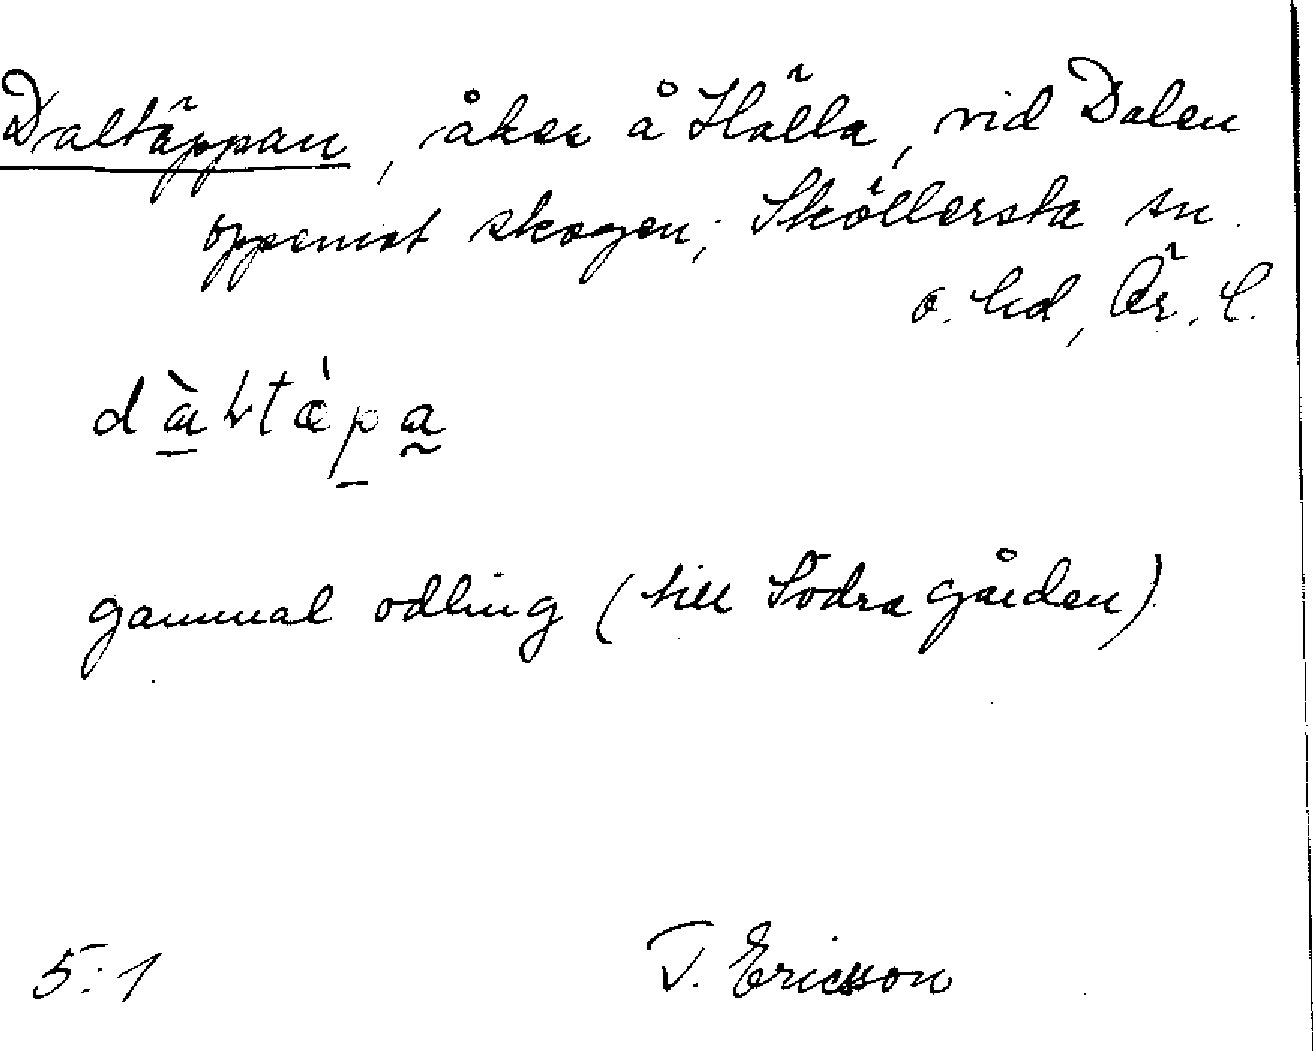 Daltäppan, åker å Hälla, vid Dalen
uppemot skogen; Sköllersta sn.
o. hd, Ör. l.
dàltæ̀pa
gammal odling (till Södra gården)
5:1 T. Ericsson